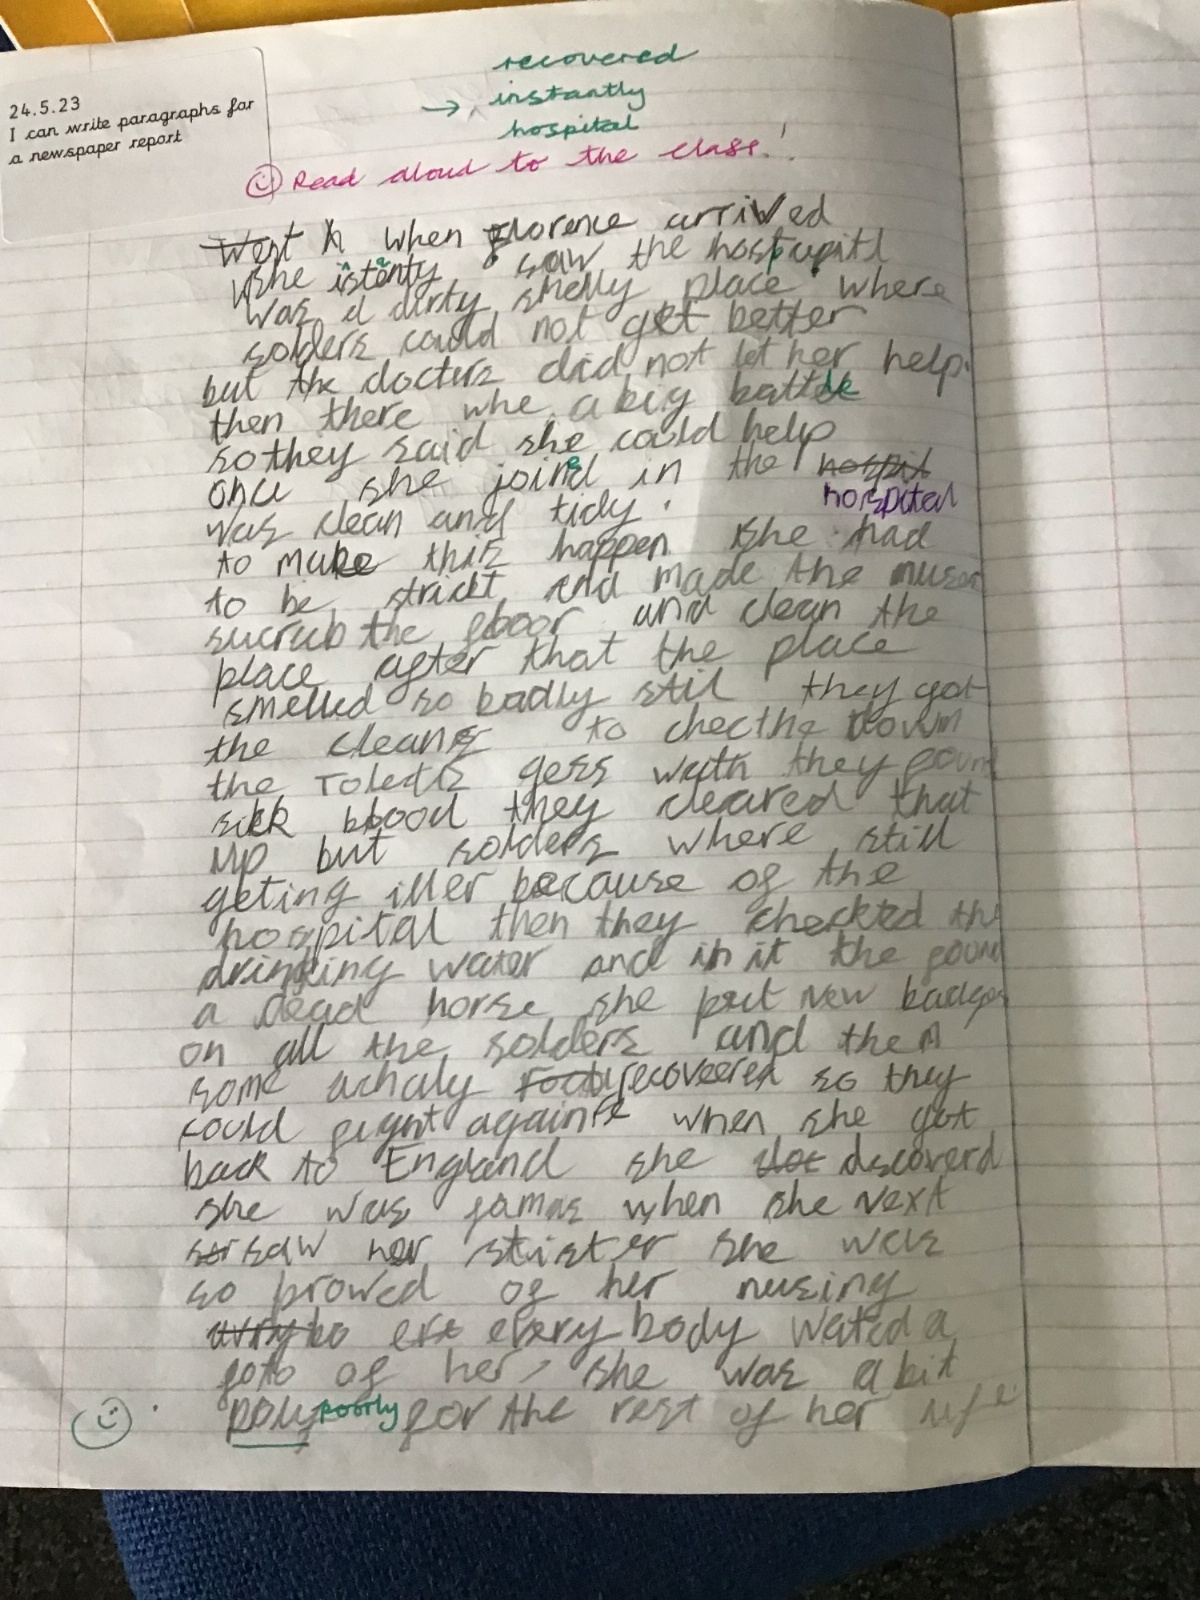 24.5.23
I can write paragraphs for
a newspaper report
recovered
→ instantly
hospital
Read aloud to the class!
Went when Florence arrived
she istenty saw the hospupitl
was a dirty smelly place where
solders could not get better
but the docters did not let her help.
then there whe a big battle
so they said she could help
once she joined in the hospit
hospital
was clean and tidy.
to make this happen she had
to be strickt and made the nuses
sucrub the floor and clean the
place after that the place
smelled so badly stil they got
the cleans to checthe down
the Toledts gess wath they found
sick blood they cleared that
up but solders where still
geting iller because of the
hospital then they checkted the
drinking water and in it the found
a dead horse she put new badges
on all the solders and then
some achaly recoveered so they
could fight again when she got
back to England she discoverd
she was famas when she next
saw her sister she was
so prowed of her nusing
every body wated a
foto of her, she was a bit
poly poorly for the rest of her life.